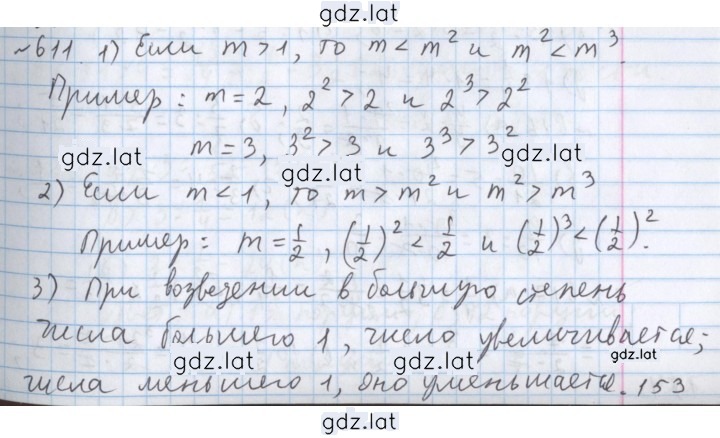 gdz.lat
~611 1) Если m > 1, то m < m² и m² < m³.
Пример: m = 2, 2² > 2 и 2³ > 2²
gdz.lat m = 3, 3² > 3 и 3³ > 3² gdz.lat
gdz.lat
2) Если m < 1, то m > m² и m² > m³
Пример: m = 1/2, (1/2)² < 1/2 и (1/2)³ < (1/2)².
3) При возведении в большую степень
числа большего 1, число увеличивается;
gdz.lat gdz.lat gdz.lat
числа меньшего 1, оно уменьшается. 153
gdz.lat